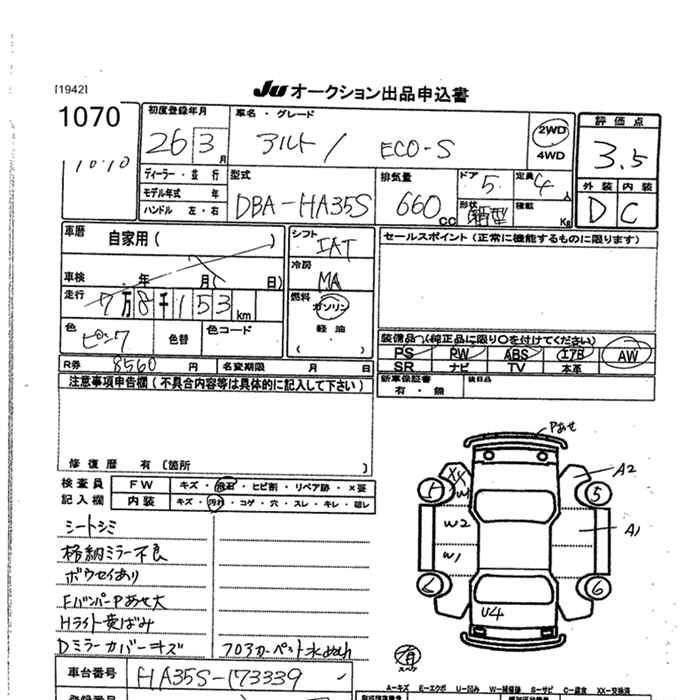 [1942]
JU オークション出品申込書
1070
10.10
初度登録年月
26 3 月
車名・グレード
アルト / ECO-S
2WD
4WD
評価点
3.5
外装 内装
D C
ディーラー・並行
モデル年式 年
ハンドル 左・右
型式
DBA-HA35S
排気量
660 cc
ドア
5
定員
4 人
形状
箱型
積載
Kg
車歴
自家用( )
車検 年 月( 日)
走行
7万8千153 km
色
ピンク
色替
色コード
シフト
IAT
冷房
MA
燃料
ガソリン
軽油
( )
セールスポイント(正常に機能するものに限ります)
装備品(純正品に限り○を付けてください)
PS PW ABS エアB AW
SR ナビ TV 本革
新車保証書
有・無
後日品
R券 8560 円 名変期限 月 日
注意事項申告欄(不具合内容等は具体的に記入して下さい)
修復歴 有〔箇所 〕
検査員
記入欄
FW キズ・飛石・ヒビ割・リペア跡・X要
内装 キズ・汚れ・コゲ・穴・スレ・キレ・破レ
シートシミ
格納ミラー不良
ボウセイあり
FバンパーPあせ大
Hライト黄ばみ
Dミラーカバーキズ
フロアカーペット水ぬれ
Pあせ
A2
W1
W2
W1
A1
U4
5
5
6
有
スペア
車台番号
HA35S-173339
A-キズ E-エクボ U-凹み W-補修跡 S-サビ XX-交換済